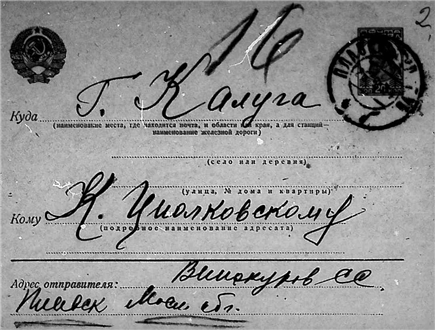 2
16
Куда Г. Калуга
(наименование места, где находится почта, и области или края, а для станций—
наименование железной дороги)
(село или деревня)
(улица, № дома и квартиры)
Кому К. Циолковскому
(подробное наименование адресата)
Адрес отправителя: Винокуров СС.
Моск обл